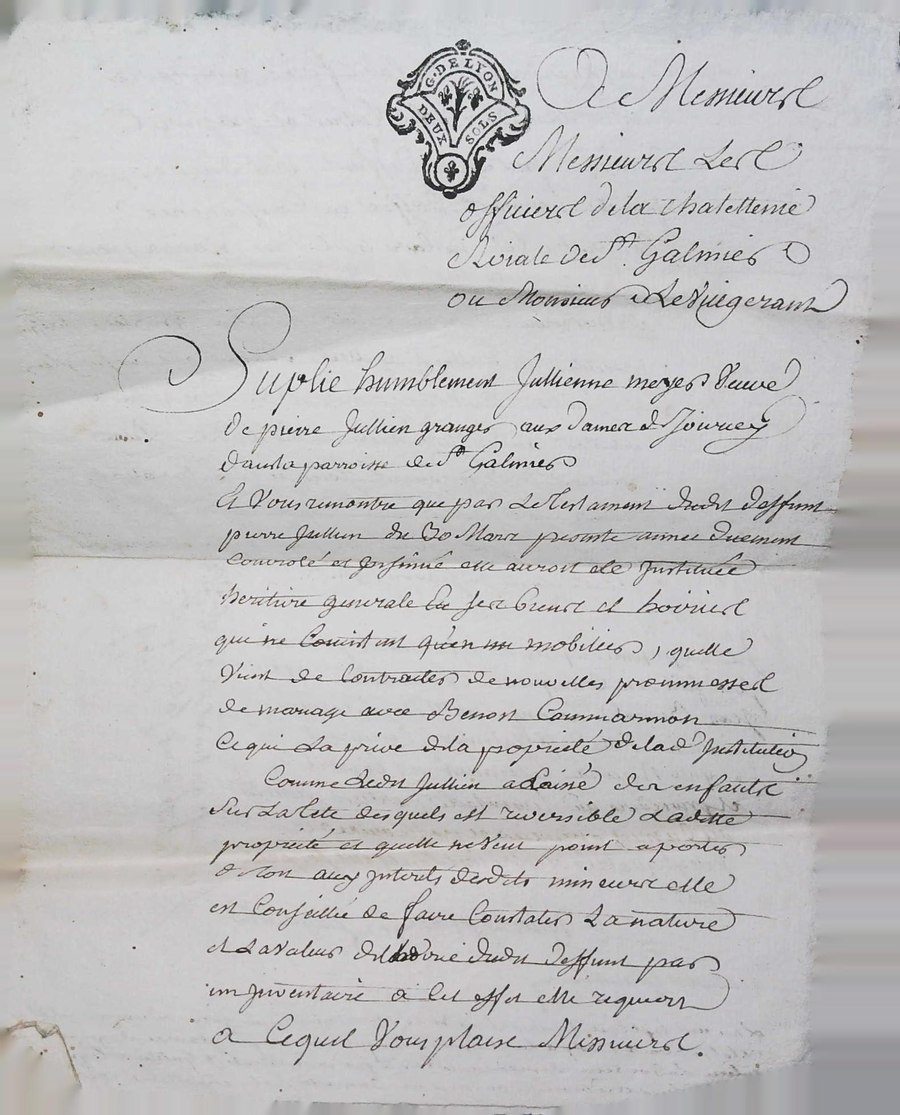 G. DE LYON
DEUX SOLS
A Messieurs
Messieurs Les
officiers de la Chatellenie
Roiale de St. Galmier
ou Monsieur Le Viegerant
Suplie humblement Jullienne meyer Veuve
de pierre Jullien granger aux Dames de Jourcey
dans la parroisse de St Galmier
Et Vous remontre que par Le Testament dudit deffunt
pierre Jullien du 30 Mars presente année duement
Controlé et Insinué elle auroit eté Instituée
heritiere generale en ses biens et hoiries
qui ne Consistent qu'en un mobilier, quelle
Vient de Contracter de nouvelles prommesses
de mariage avec Benoit Commarmon
Ce qui La prive de la proprieté de lad Institution
Comme Ledit Jullien a Laissé des enfants
Sur La tete desquels est reversible Laditte
proprieté et quelle ne Veut point aporter
de tort aux Interets desdits mineurs elle
est Conseillée de faire Constater La nature
et La valeur de hoirie dudit deffunt par
un Inventaire a Cet effet elle requiert
a Ce quil Vous plaise Messieurs.